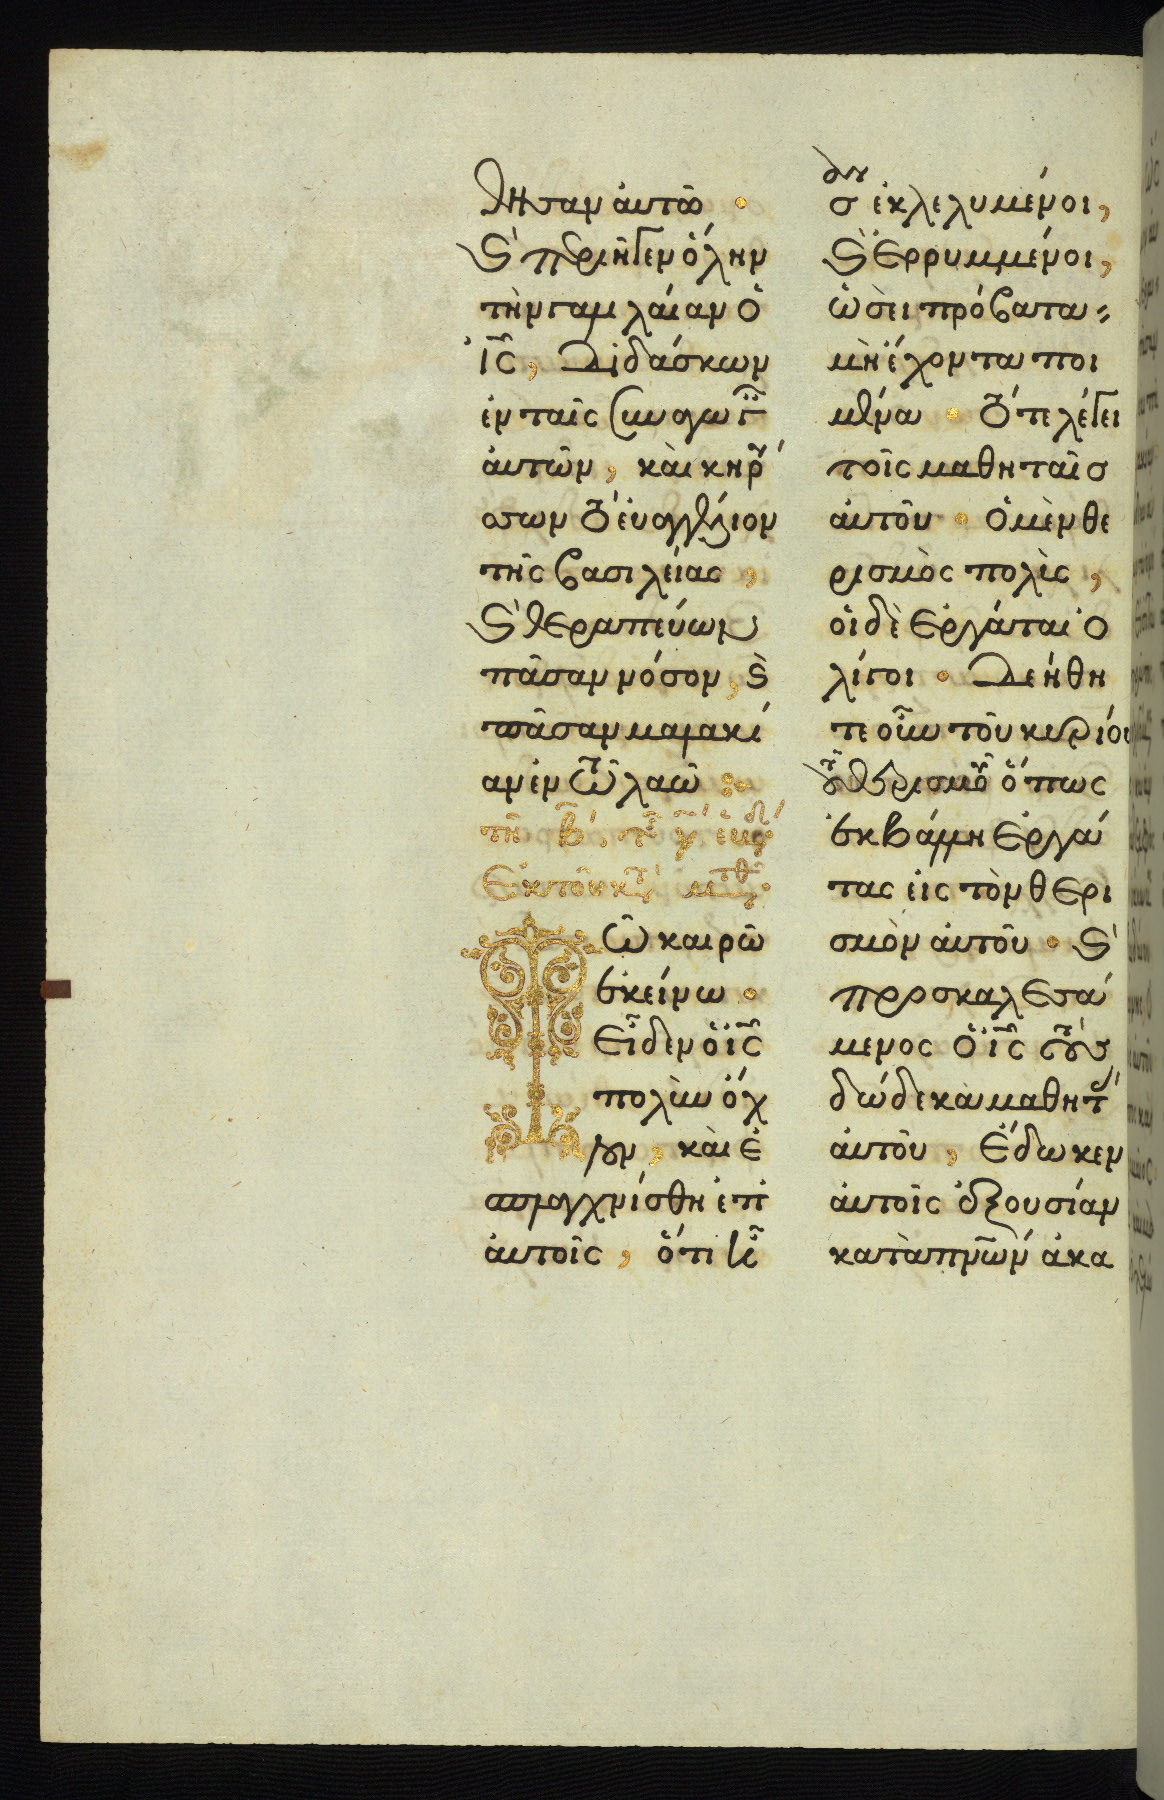 λησαν ἀυτῶ ·
ϛ̀ περιῆγεν ὅλην
τὴν γαλιλαίαν ὁ
ἶς, διδάσκων
ἐν ταῖς συναγωγ͂
ἀυτῶν, κὰι κηρύ
σσων τὸ ἐυαγγέλιον
τῆς βασιλείας,
ϛ̀ θεραπεύων
πᾶσαν νόσον, ϛ̀
πᾶσαν μαλακί
αν ἐν τῶ λαῶ :
τῆ β̅
Εκ τοῦ κατ μτθ
Τῶ καιρῶ
ἐκείνω ·
Εἶδεν ὁ ἶς
πολὺν ὄχ
λον, κὰι ἐ
σπλαγχνίσθη ἐπ'
ἀυτοῖς, ὅτι ἦ
σαν
σ ἐκλελυμένοι,
ϛ̀ ἐρρυμμένοι,
ὡσὲι πρόβατα
μὴ ἔχοντα ποι
μένα · τότε λέγει
τοῖς μαθηταῖσ
ἀυτοῦ · ὁ μὲν θε
ρισμὸς πολὺς,
οἱ δὲ ἐργάται ὀ
λίγοι · Δεήθη
τε οὖν τοῦ κυρίου
τοῦ θερισμοῦ ὅπως
ἐκβάλλη ἐργά
τας ἐις τὸν θερι
σμὸν ἀυτοῦ · ϛ̀
προσκαλεσά
μενος ὁ ἶς τοὺς
δώδεκα μαθητ
ἀυτοῦ, ἔδωκεν
ἀυτοῖς ἐξουσίαν
κατὰ πν͂ων ἀκα